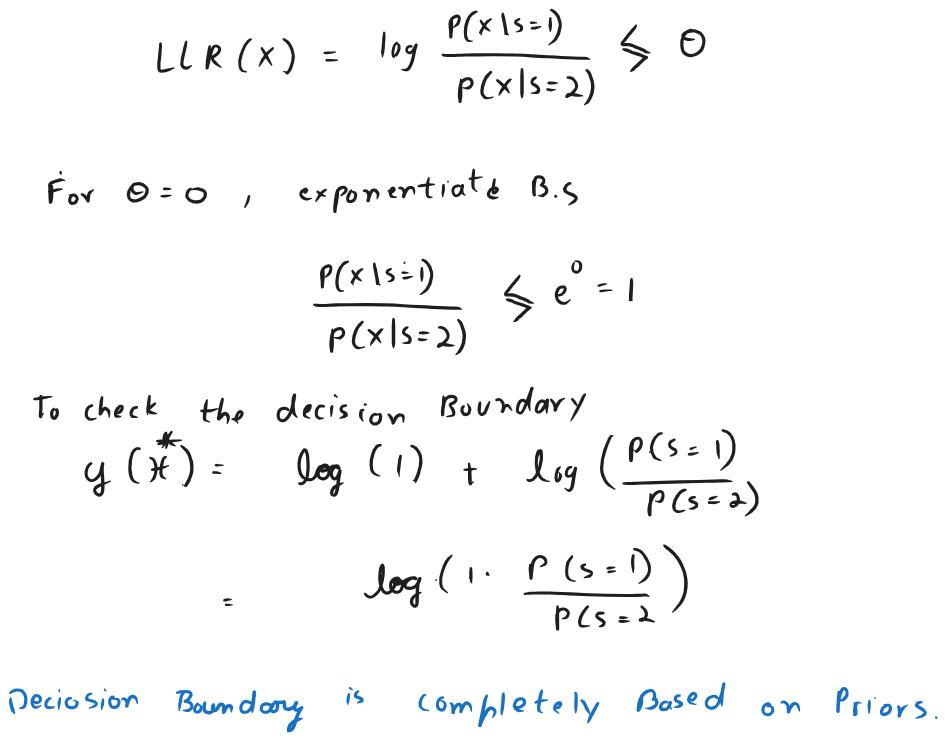 LLR(x) = log P(x|s=1) / P(x|s=2) ≶ θ
For θ=0 , exponentiate B.s
P(x|s=1) / P(x|s=2) ≶ e^0 = 1
To check the decision Boundary
y(x*) = log(1) + log(P(s=1) / P(s=2)
= log(1. P(s=1) / P(s=2)
Deciosion Boundary is completely Based on Priors.